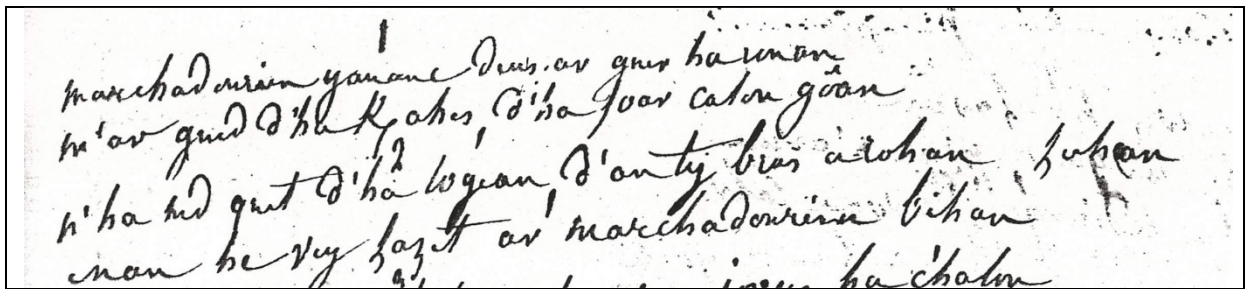 1
marchadourien yaouanc deus ar guer ha unan
m'ar guid d'ha K/ahes d'ha foar calon gôan
2
n'ha nd quet d'ha logean d'an ty bras a rohan
enan he vey lazet ar marchadourien bihan
ha c'halon